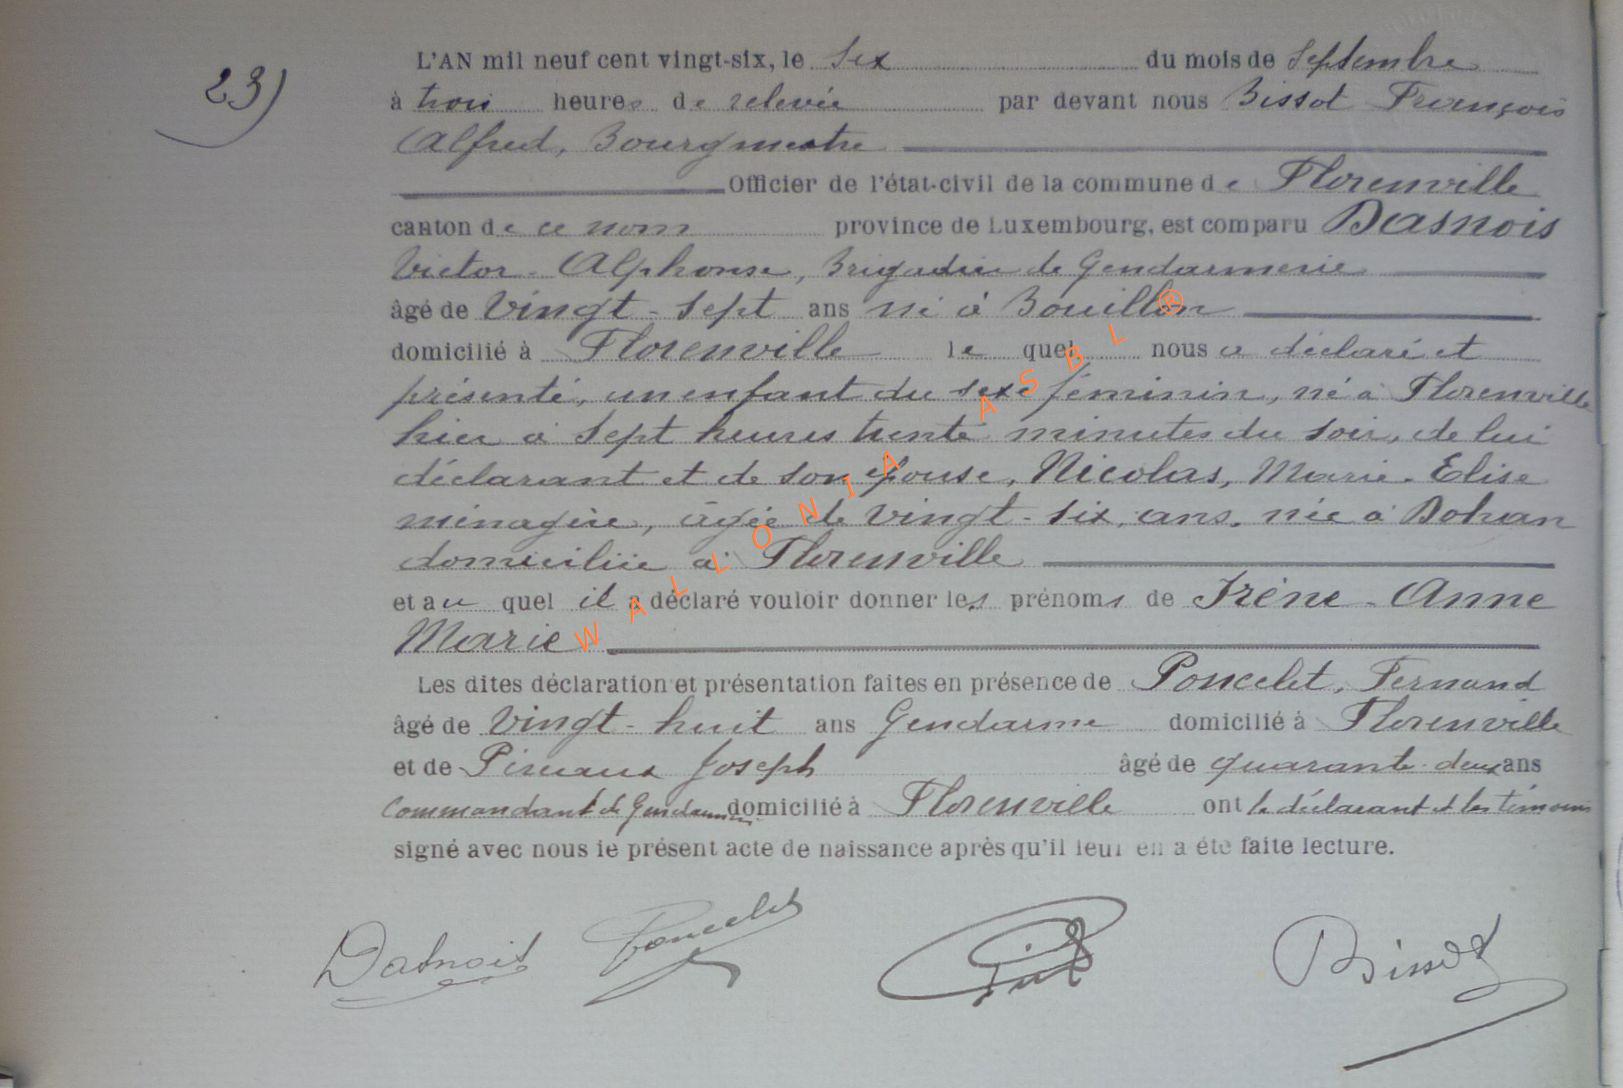 23)
L'AN mil neuf cent vingt-six, le Six du mois de Septembre
à trois heures de relevée par devant nous Bissot François
Alfred, Bourgmestre
Officier de l'état-civil de la commune de Florenville
canton de ce nom province de Luxembourg, est comparu Dasnois
Victor-Alphonse, Brigadier de Gendarmerie
âgé de Vingt-Sept ans né à Bouillon
domicilié à Florenville lequel nous a déclaré et
présenté, un enfant du sexe féminin, né à Florenville
hier à Sept heures trente minutes du soir, de lui
déclarant et de son épouse, Nicolas, Marie-Elise
ménagère, âgée de Vingt-six, ans, née à Dohan
domiciliée à Florenville
et au quel il a déclaré vouloir donner les prénoms de Irène-Anne
Marie
Les dites déclaration et présentation faites en présence de Poncelet, Fernand
âgé de Vingt-huit ans Gendarme domicilié à Florenville
et de Joseph âgé de quarante-deux ans
Commandant de Gendarmerie domicilié à Florenville ont le déclarant et les témoins
signé avec nous le présent acte de naissance après qu'il leur en a été faite lecture.
Dasnois Poncelet Bissot
WALLONIA ASBL ®